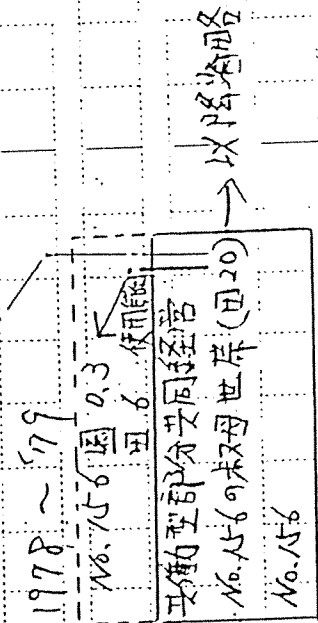 1978～'79
No.156 園 0.3
田 6 使用可能
共働型部分共同経営
No.156の叔母世帯(田20)
No.156
→以降省略